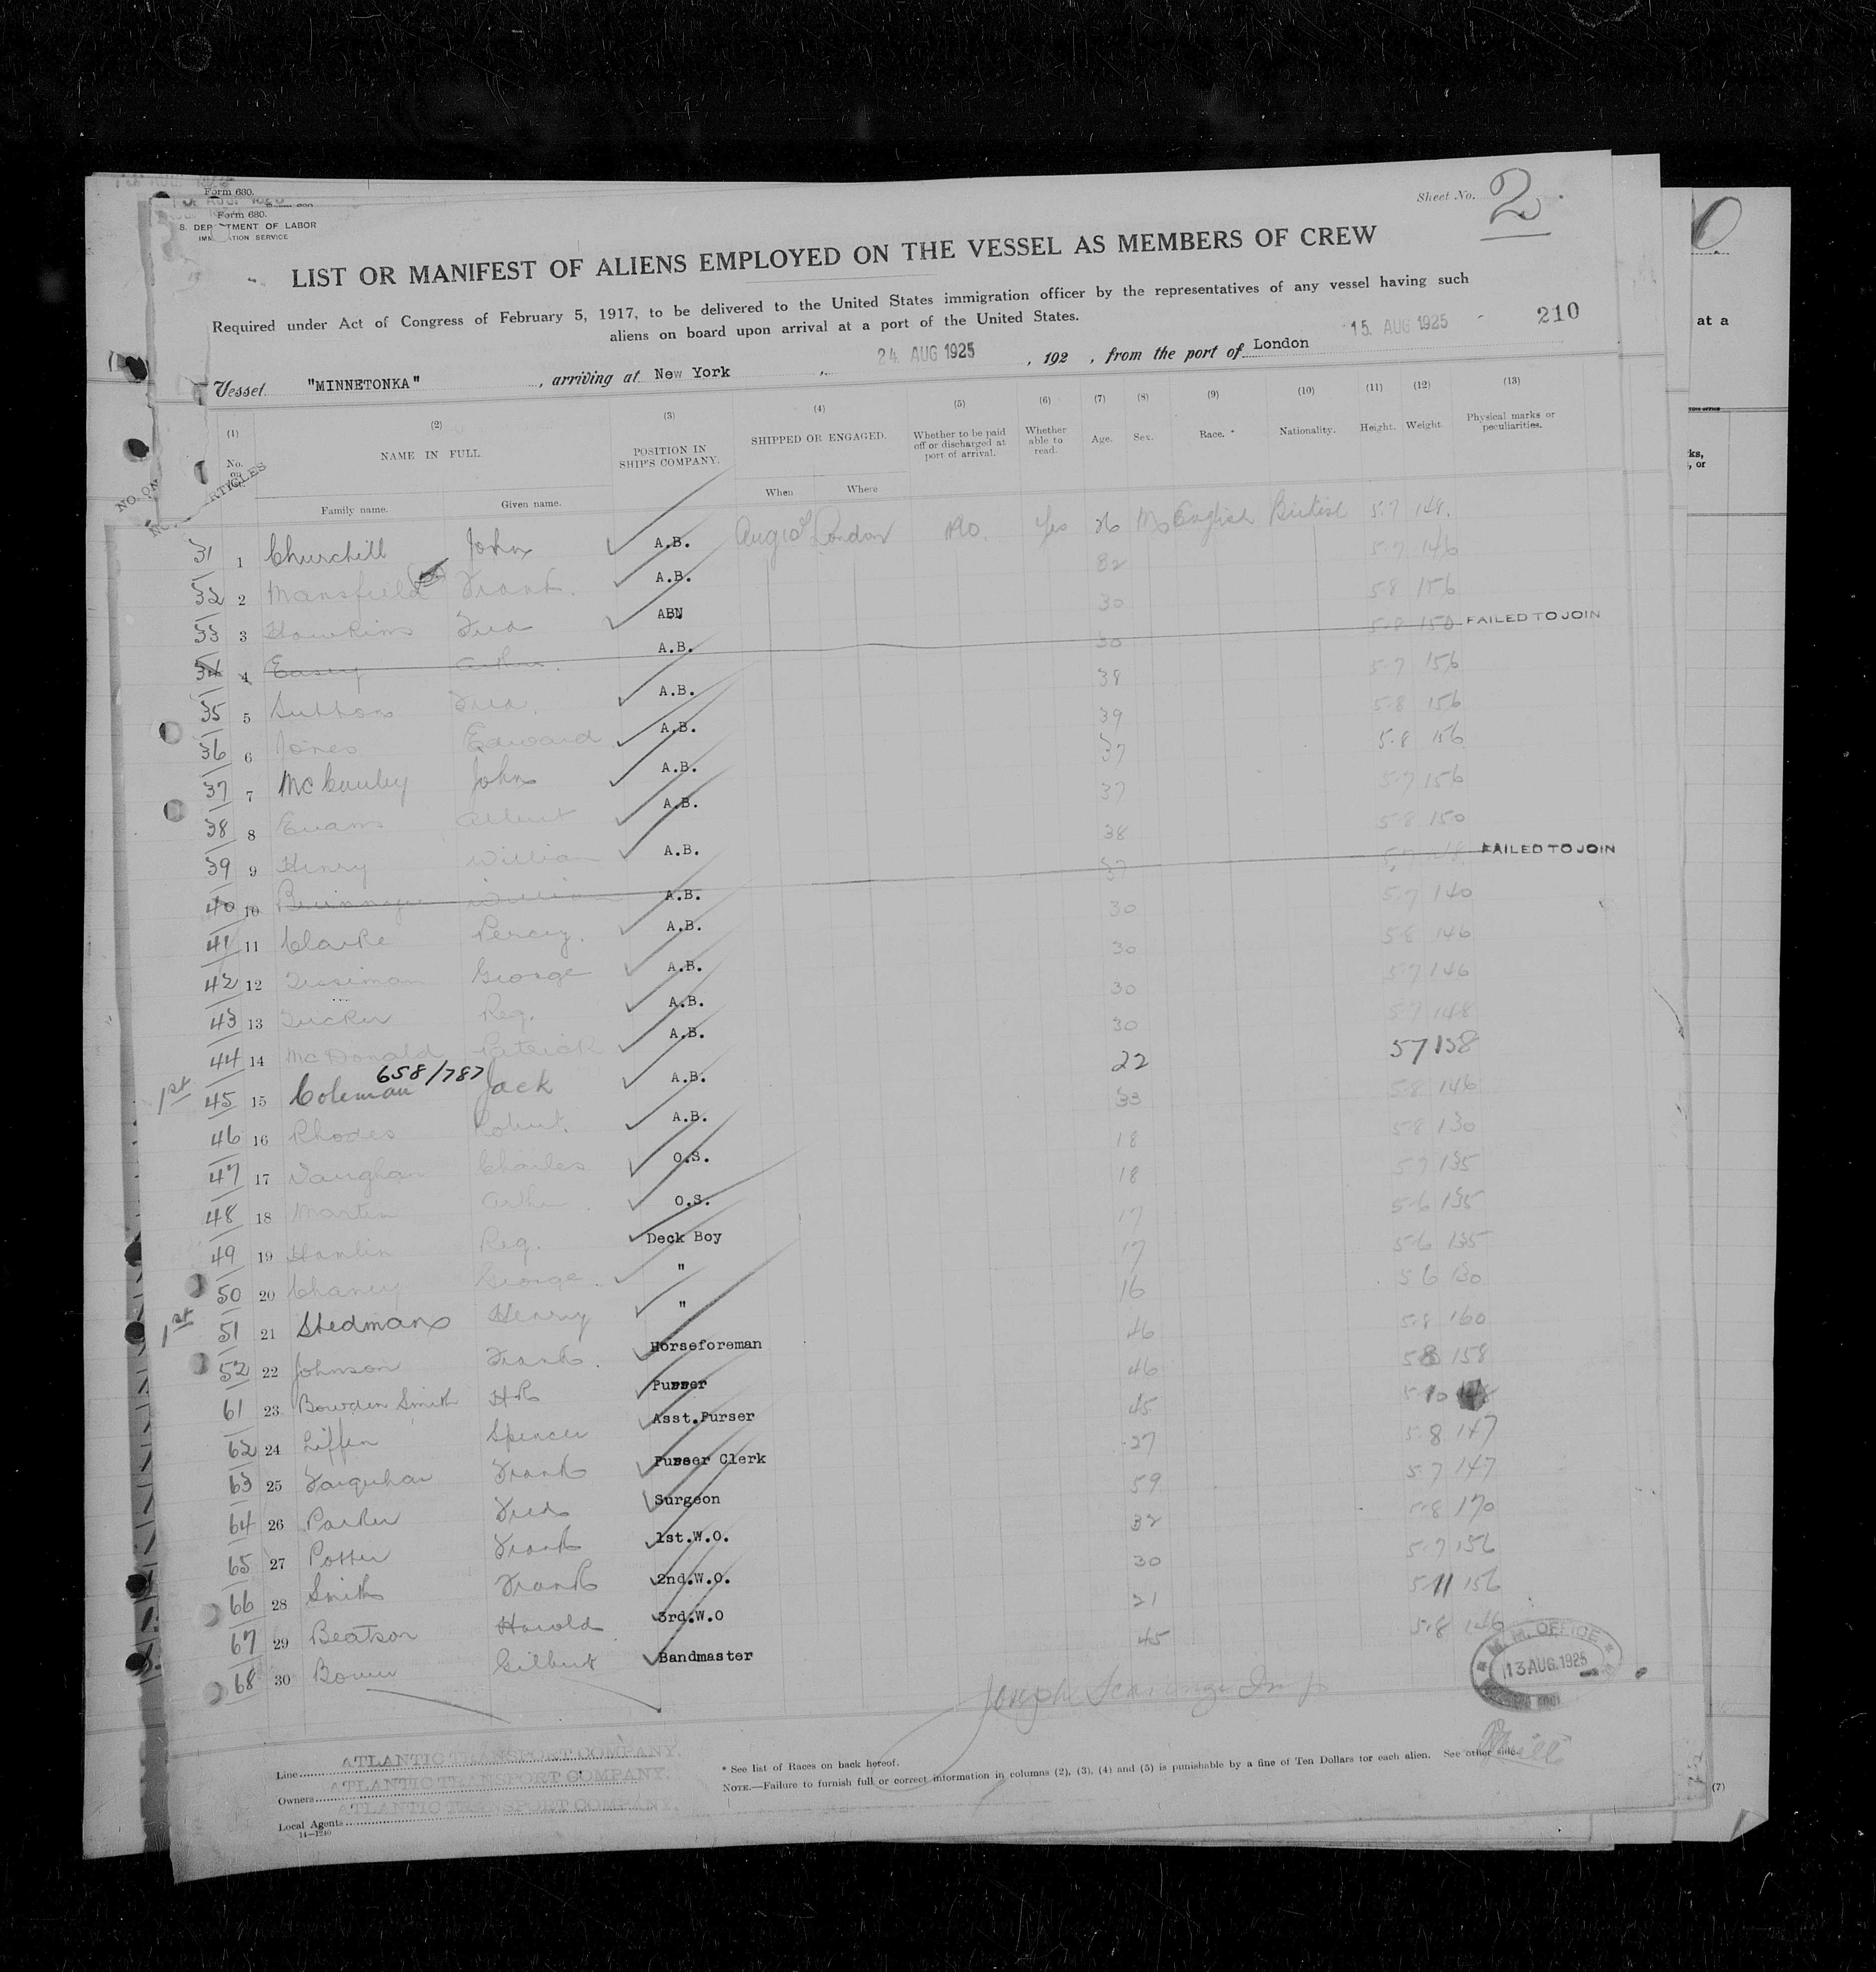 Form 630.
Form 680.
S. DEPARTMENT OF LABOR
IMMIGRATION SERVICE
Sheet No. 2
LIST OR MANIFEST OF ALIENS EMPLOYED ON THE VESSEL AS MEMBERS OF CREW
Required under Act of Congress of February 5, 1917, to be delivered to the United States immigration officer by the representatives of any vessel having such
aliens on board upon arrival at a port of the United States.
15. AUG 1925
210
at a
Vessel "MINNETONKA", arriving at New York, 24 AUG 1925, 192 , from the port of London
(1) (2) (3) (4) (5) (6) (7) (8) (9) (10) (11) (12) (13)
No. on ARTICLES
NAME IN FULL
POSITION IN SHIP'S COMPANY.
SHIPPED OR ENGAGED.
Whether to be paid off or discharged at port of arrival.
Whether able to read.
Age. Sex. Race. * Nationality. Height. Weight.
Physical marks or peculiarities.
Family name. Given name. When Where
31 1 Churchill John A.B. Aug 10 London No. Yes 26 M English British 5.7 148.
32 2 Mansfield Frank. A.B. 32 5.7 146
33 3 Hawkins Fred ABN 30 5.8 156
34 4 Easey Arthur. A.B. 30 5.8 150 FAILED TO JOIN
35 5 Suttons Fred. A.B. 38 5.7 156
36 6 Jones Edward A.B. 39 5.8 156
37 7 McCauley John A.B. 37 5.8 156
38 8 Evans Albert A.B. 37 5.7 156
39 9 Henry William A.B. 38 5.8 150
40 10 William A.B. 37 FAILED TO JOIN
41 11 Clarke Percy. A.B. 30 5.7 140
42 12 George A.B. 30 5.8 146
43 13 Tucker Reg. A.B. 30 5.7 146
44 14 McDonald Patrick A.B. 30 5.7 148
658/787
1st 45 15 Coleman Jack A.B. 22 5 7 138
46 16 Rhodes Robert. A.B. 33 5.8 146
47 17 Vaughan Charles O.S. 18 5.8 130
48 18 Martin Arthur O.S. 18 5.7 135
49 19 Hamlin Reg. Deck Boy 17 5.6 135
50 20 Chaney George. " 17 5.6 135
1st 51 21 Stedman Henry " 16 5 6 130
52 22 Johnson Frank. Horseforeman 46 5.8 160
61 23 Bowden Smith H R Purser 46 5 8 158
62 24 Liffen Spencer Asst.Purser 45 5.10 148
63 25 Farquhar Frank Purser Clerk 27 5.8 147
64 26 Parker Fred Surgeon 59 5.7 147
65 27 Potter Frank 1st.W.O. 32 5.8 170
66 28 Smith Frank 2nd.W.O. 30 5.7 156
67 29 Beatson Harold 3rd.W.O 21 5.11 156
68 30 Bower Gilbert Bandmaster 45 5.8 146
M.M. OFFICE
13 AUG.1925
Line ATLANTIC TRANSPORT COMPANY.
Owners ATLANTIC TRANSPORT COMPANY.
Local Agents ATLANTIC TRANSPORT COMPANY.
14—1240
* See list of Races on back hereof.
NOTE.—Failure to furnish full or correct information in columns (2), (3), (4) and (5) is punishable by a fine of Ten Dollars for each alien. See other side.
(7)